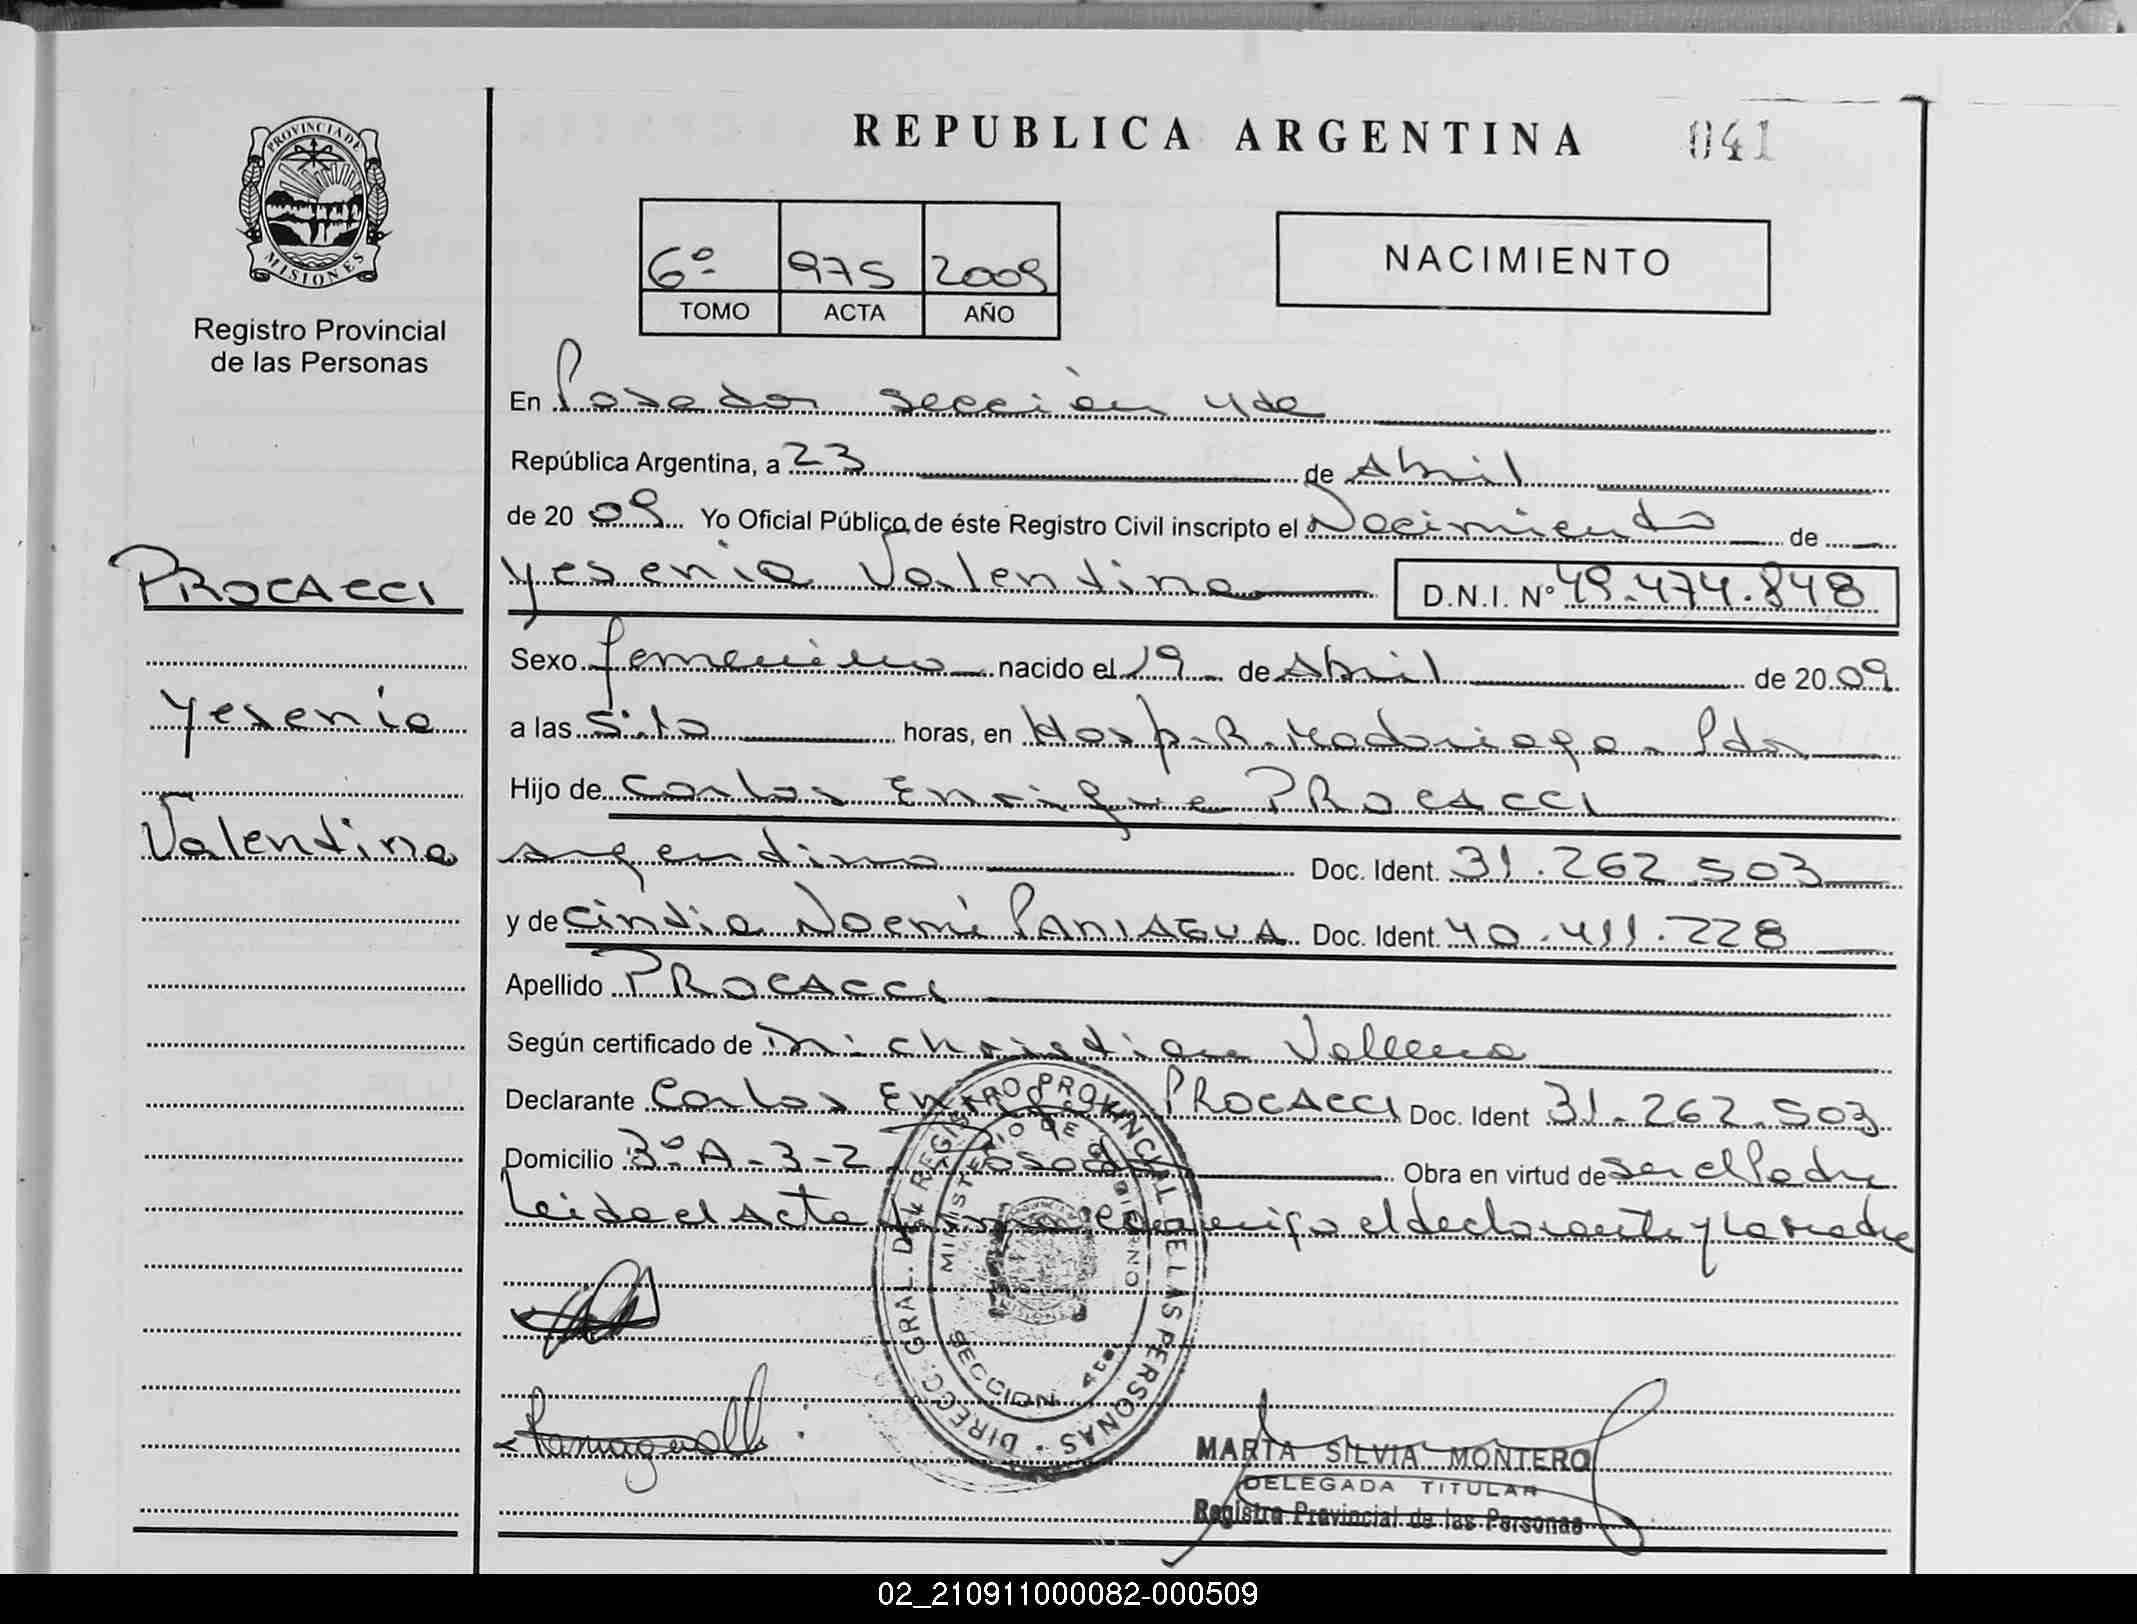 REPUBLICA ARGENTINA 041
PROVINCIA DE MISIONES
Registro Provincial
de las Personas
6º 975 2009
TOMO ACTA AÑO
NACIMIENTO
En Posadas sección 4ta
República Argentina, a 23 de Abril
de 2009 Yo Oficial Público de éste Registro Civil inscripto el Nacimiento de
Yesenia Valentina D.N.I. Nº 49.474.848
PROCACCI
Yesenia
Valentina
Sexo femenino nacido el 19 de Abril de 2009
a las 5:10 horas, en Hosp. R. Madariaga - Pdas
Hijo de Carlos Enrique PROCACCI
argentino Doc. Ident. 31.262.503
y de Cintia Noemí PANIAGUA Doc. Ident. 40.411.228
Apellido PROCACCI
Según certificado de Dr. Christian
Declarante Carlos PROCACCI Doc. Ident 31.262.503
Domicilio 3º A-3-2 Posadas Obra en virtud de ser el Padre
Leida el Acta firma conmigo el declarante y la madre
DIRECC. GRAL. DEL REGISTRO PROVINCIAL DE LAS PERSONAS
MINISTERIO DE GOBIERNO
SECCION 4ta.
MARTA SILVIA MONTERO
DELEGADA TITULAR
Registro Provincial de las Personas
02_210911000082-000509